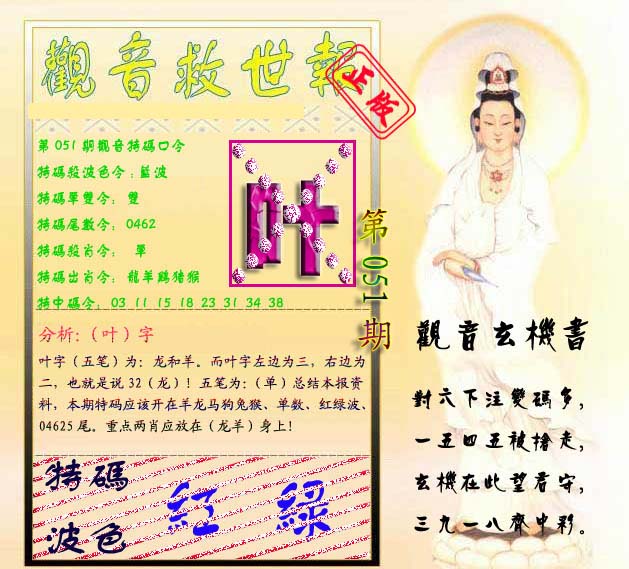 觀音救世報
正版
第051期觀音特碼口令
特碼殺波色令:藍波
特碼單雙令: 雙
特碼尾數令: 0462
特碼殺肖令: 單
特碼出肖令: 龍羊鷄猪猴
特中碼令: 03 11 15 18 23 31 34 38
叶
第051期
分析:(叶)字
叶字(五笔)为:龙和羊。而叶字左边为三,右边为
二,也就是说32(龙)!五笔为:(单)总结本报资
料,本期特码应该开在羊龙马狗兔猴、单数、红绿波、
04625尾。重点两肖应放在(龙羊)身上!
特碼
波色
紅 綠
觀音玄機書
對六下注變碼多,
一五四五被搶走,
玄機在此望看守,
三九一八齊中彩。